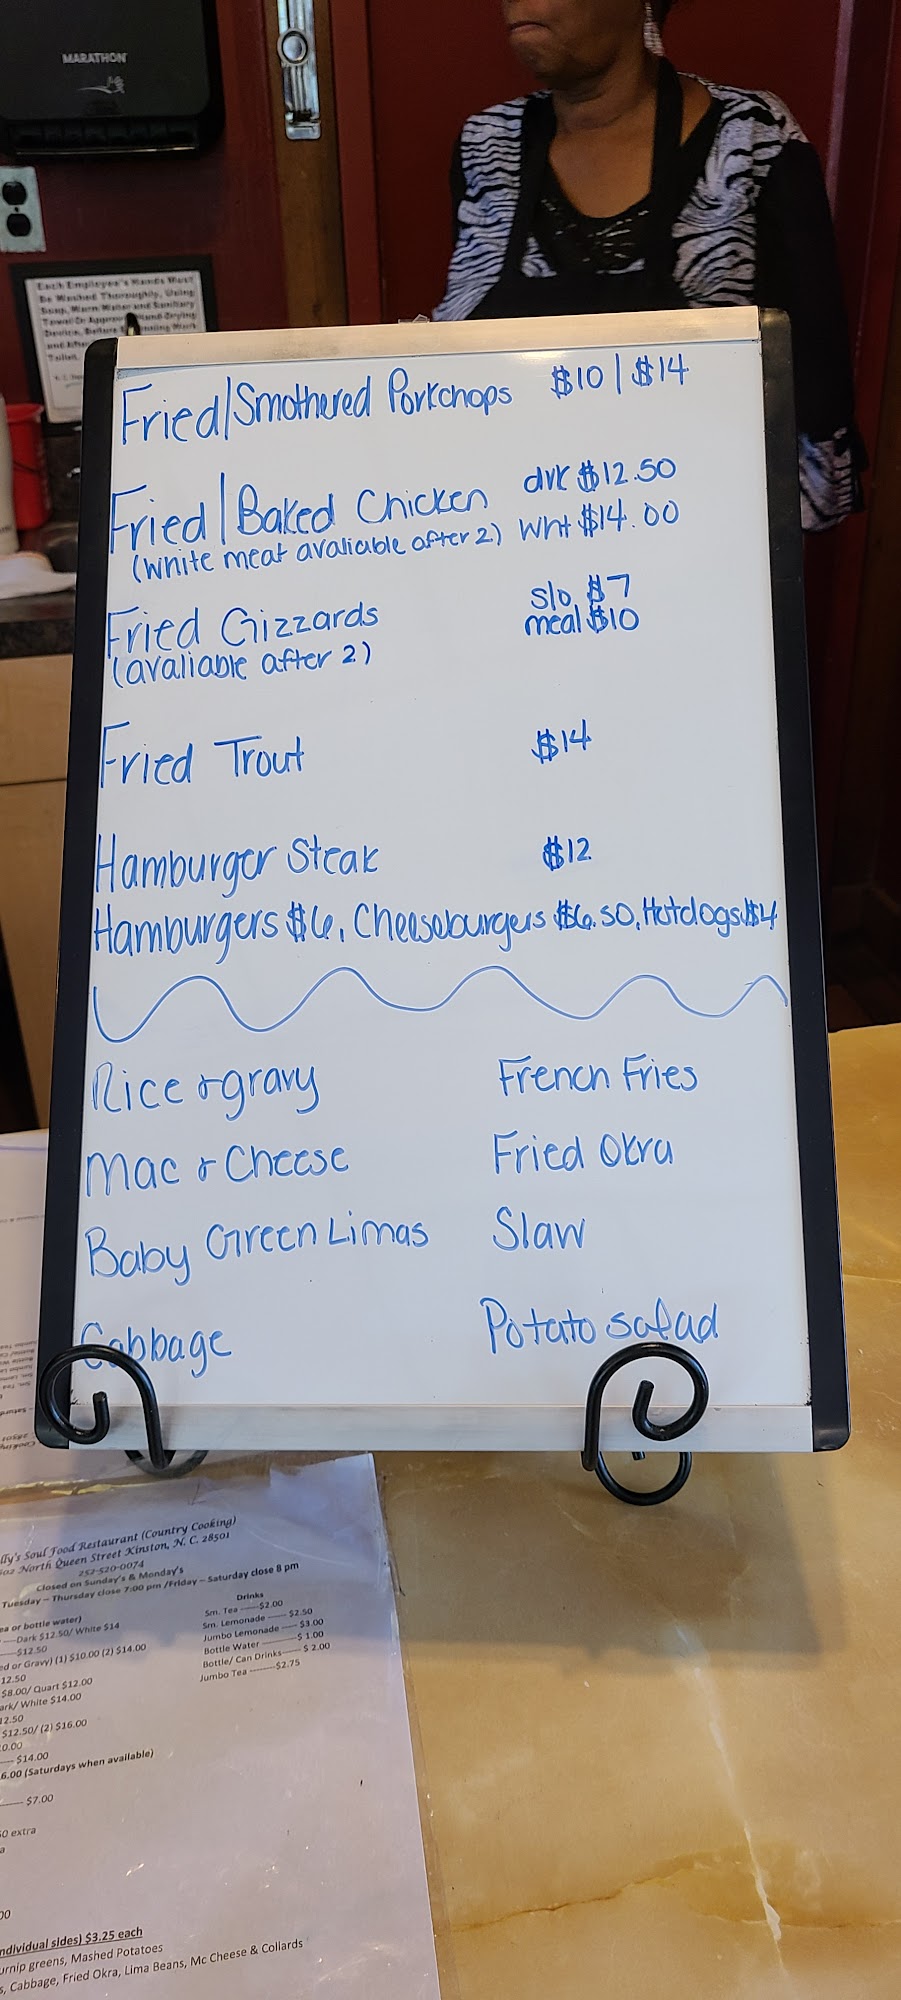 MARATHON
Each Employee's Hands Must
Be Washed Thoroughly, Using
Soap, Warm Water and Sanitary
Towel Or Approved Hand-Drying
Device, Before Beginning Work
and After
Toilet.
Fried/Smothered Porkchops $10 | $14
Fried/Baked Chicken drk $12.50
(white meat avaliable after 2) wht $14.00
Fried Gizzards s/o $7
(avaliable after 2) meal $10
Fried Trout $14
Hamburger Steak $12
Hamburgers $6, Cheeseburgers $6.50, Hotdogs $4
Rice & gravy French Fries
Mac & Cheese Fried Okra
Baby Green Limas Slaw
Cabbage Potato salad
lly's Soul Food Restaurant (Country Cooking)
602 North Queen Street Kinston, N. C. 28501
252-520-0074
Closed on Sunday's & Monday's
Tuesday – Thursday close 7:00 pm /Friday – Saturday close 8 pm
Drinks
Sm. Tea -----$2.00
Sm. Lemonade ------ $2.50
Jumbo Lemonade ---- $3.00
Bottle Water ---------$ 1.00
Bottle/ Can Drinks----- $ 2.00
Jumbo Tea --------$2.75
ea or bottle water)
----Dark $12.50/ White $14
-----$12.50
ed or Gravy) (1) $10.00 (2) $14.00
12.50
$8.00/ Quart $12.00
ark/ White $14.00
12.50
$12.50/ (2) $16.00
0.00
---- $14.00
6.00 (Saturdays when available)
------ $7.00
50 extra
a
00
ndividual sides) $3.25 each
urnip greens, Mashed Potatoes
s, Cabbage, Fried Okra, Lima Beans, Mc Cheese & Collards